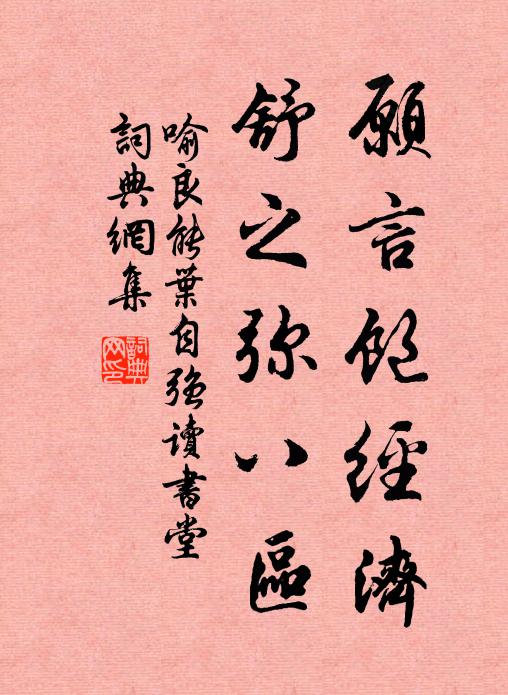 願言飽經濟
舒之弥八區
喻良能葉自强讀書堂
詞典網集
詞典
网印